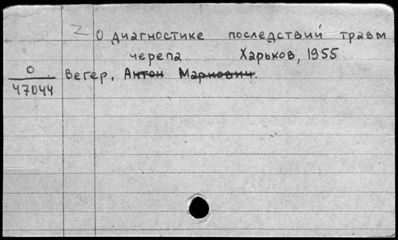 2 О диагностике последствий травм
черепа. Харьков, 1955
О Вегер, Антон Маркович.
47044